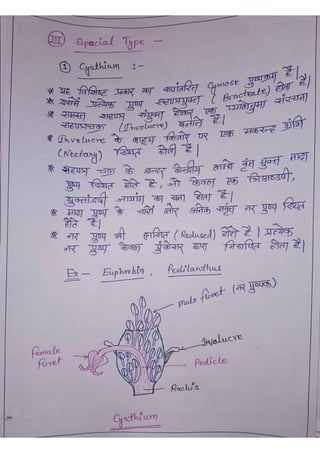 III Special Type -
① Cyathium :-
* यह विशिष्ट प्रकार का रूपांतरित Cymose पुष्पक्रम है।
* इसमें प्रत्येक पुष्प सहपत्रयुक्त (Bracteate) होता है।
* समस्त सहपत्र संयुक्त होकर एक प्यालेनुमा संरचना
सहपत्रचक्र (Involucre) बनाते हैं।
* Involucre के बाह्य किनारे पर एक मकरन्द ग्रंथि
(Nectary) स्थित होती है।
* सहपत्र चक्र के अन्दर केन्द्रीय लम्बे वृन्त युक्त मादा
पुष्प स्थित होते हैं, जो केवल एक त्रिअण्डपी,
युक्तांडपी जायांग का बना होता है।
* मादा पुष्प के चारों ओर अनेक नर पुष्प स्थित
होते हैं।
* नर पुष्प भी (Reduced) होते हैं। प्रत्येक
नर पुष्प केवल पुंकेसर द्वारा निरूपित होता है।
Ex - Euphorbia, Pedilanthus
male floret (नर पुष्पक)
Involucre
Female
floret
Pedicle
Rachis
Cyathium